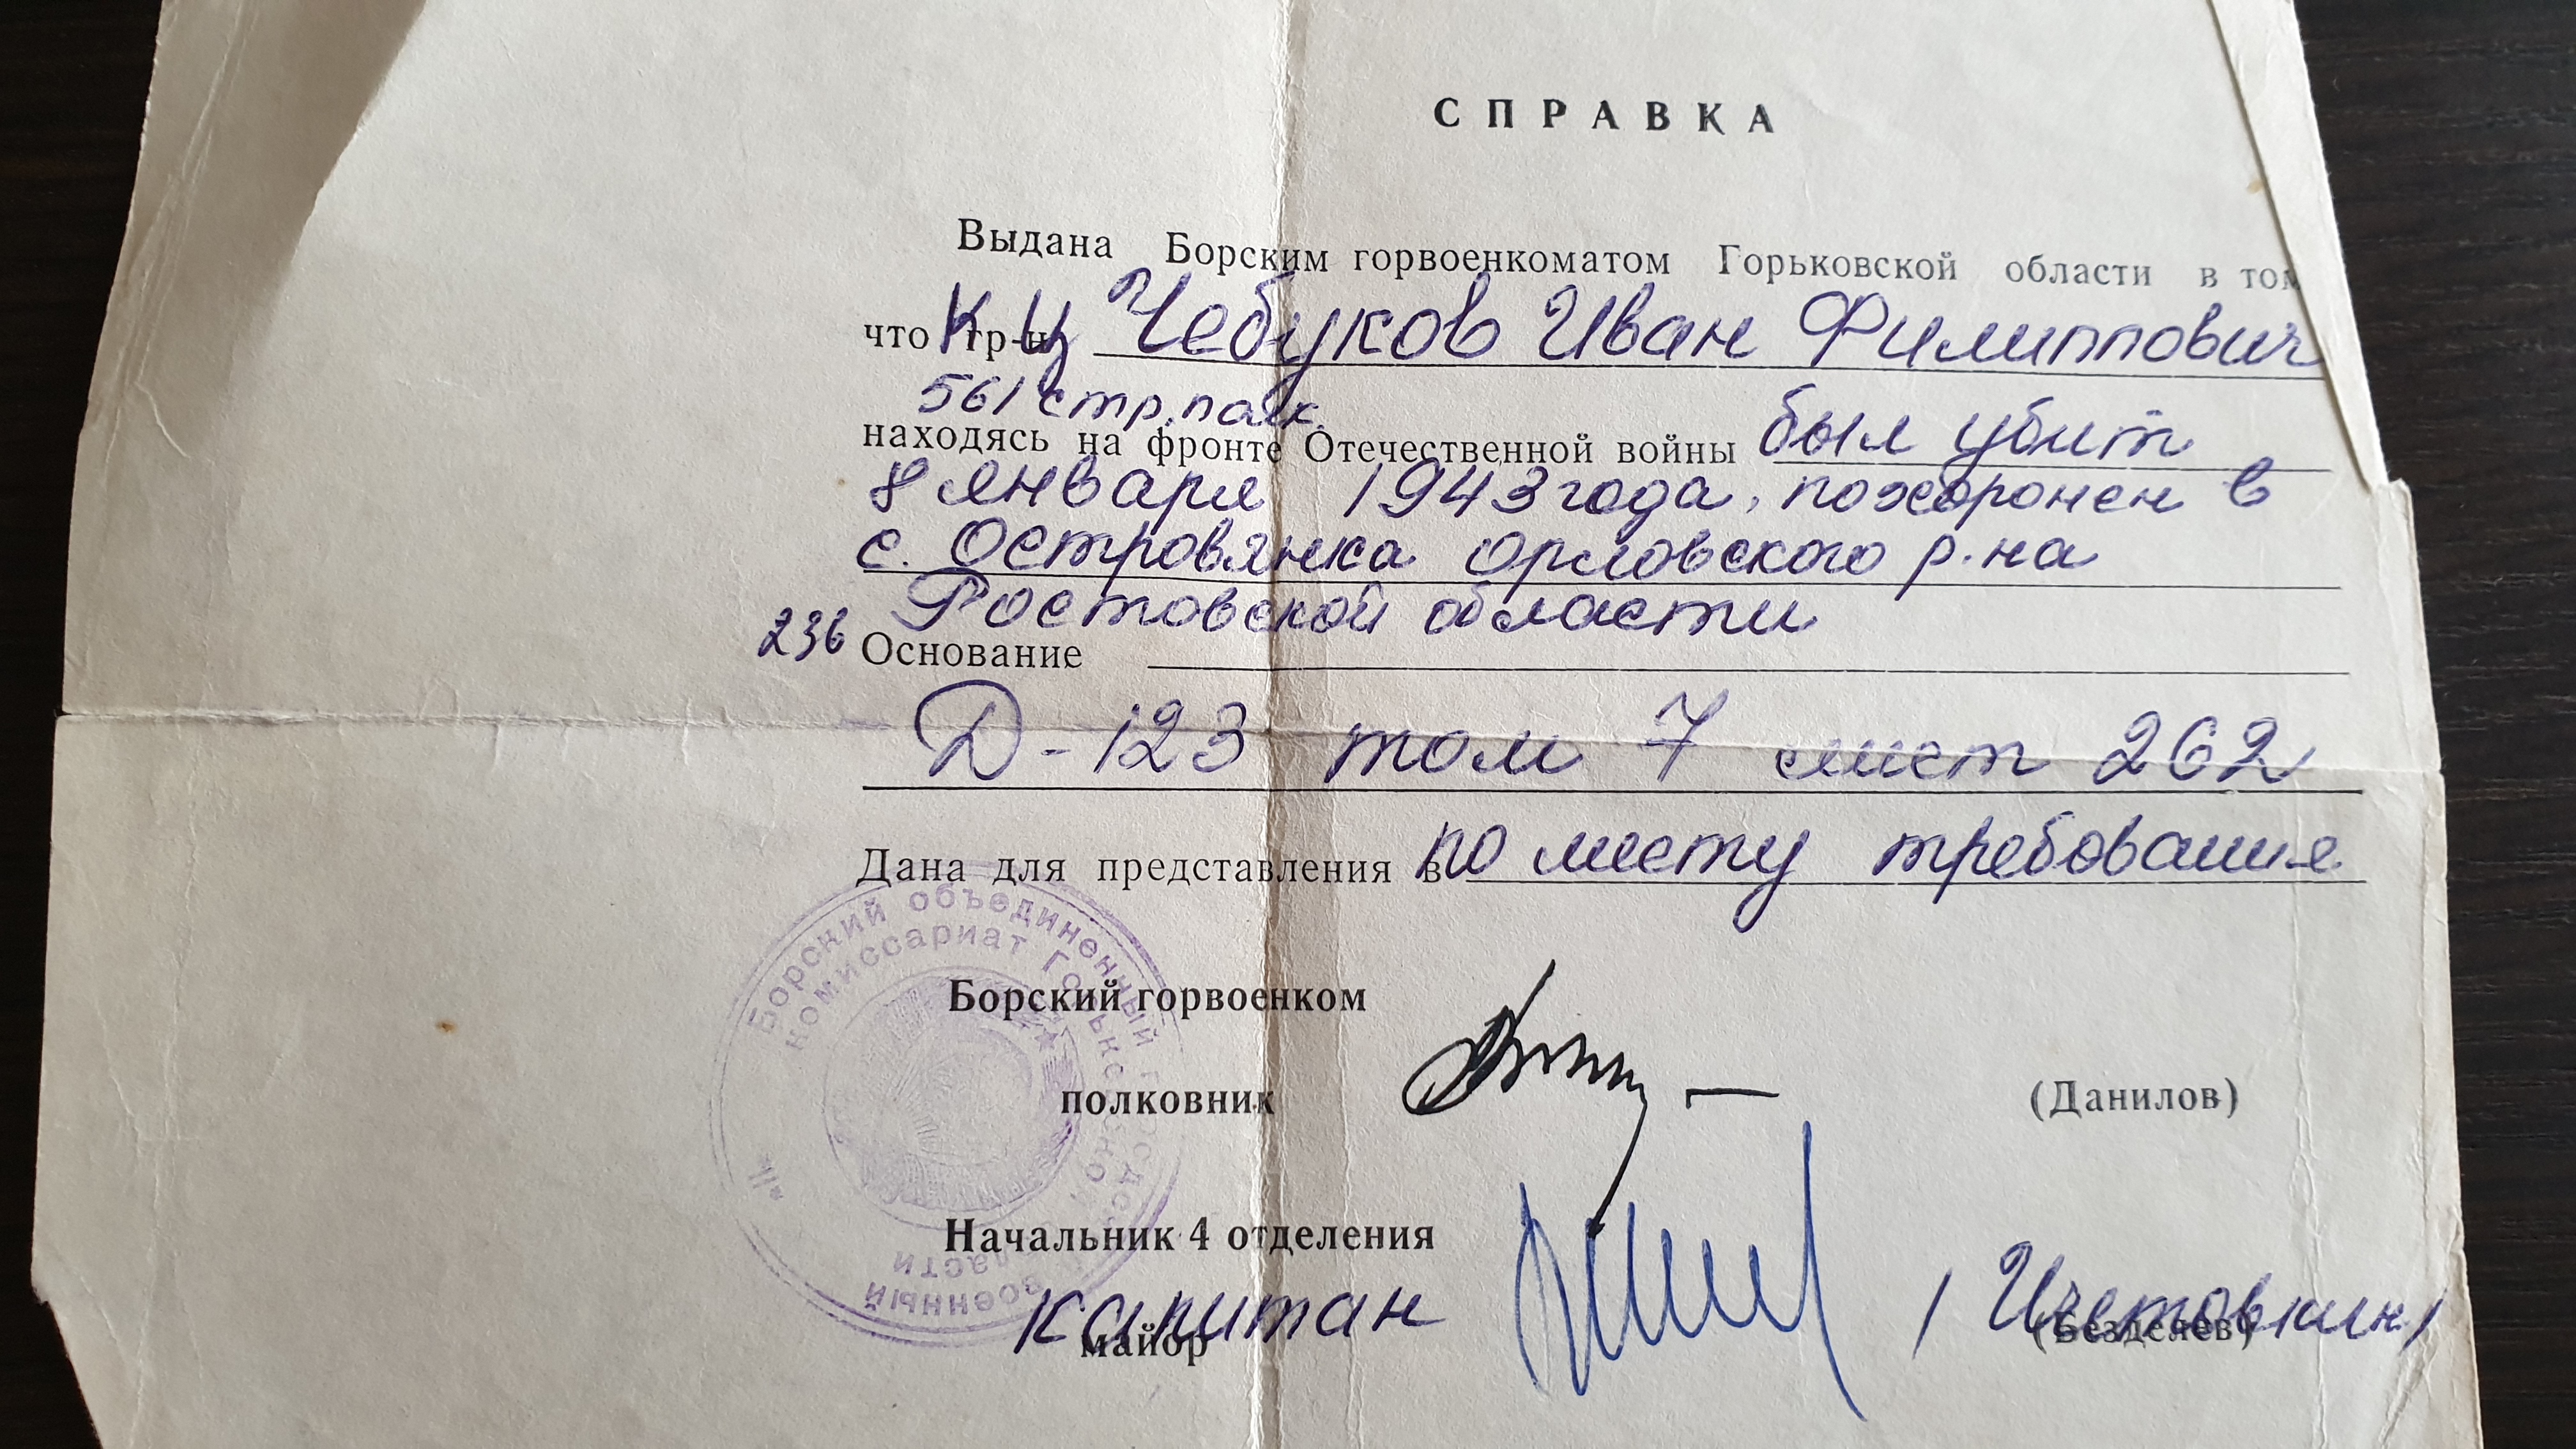 СПРАВКА
Выдана Борским горвоенкоматом Горьковской области в том
что гр-н к-ц Чебуков Иван Филиппович
561 стр. полк
находясь на фронте Отечественной войны был убит
8 января 1943 года, похоронен в
с. Островянка Орловского р-на
Ростовской области
236 Основание
Д-123 том 7 лист 262
Дана для представления в по месту требования
Борский объединенный городской военный
комиссариат Горьковской области
Борский горвоенком
полковник (Данилов)
Начальник 4 отделения
капитан
майор (Безделев)